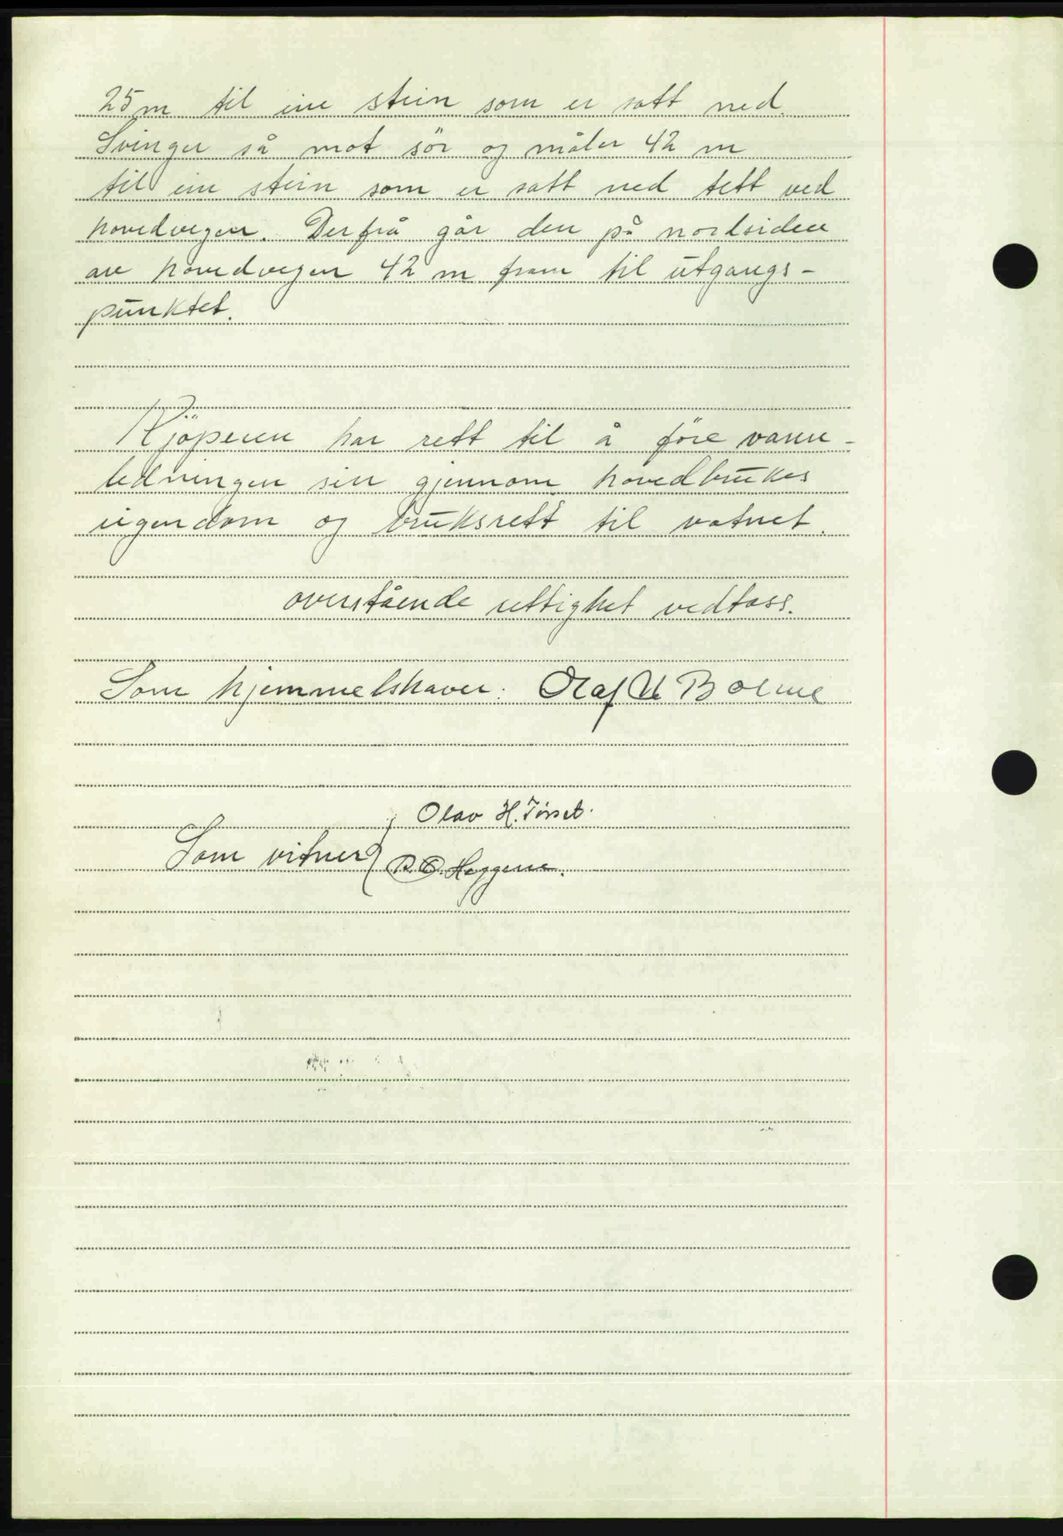 25 m til ein stein som er satt ned.
Svinger så mot sör og måler 42 m
til ein stein som er satt ned tett ved
hovedvegen. Derfrå går den på nordsiden
av hovedvegen 42 m fram til utgangs-
punktet.
Kjöperen har rett til å före vann-
ledningen sin gjennom hovedbrukes
eigendom og bruksrett til vatnet.
overstående rettighet vedtass.
Som hjemmelshaver: Olaf U Bolme
Olav H. Tørset.
Som vitner
Heggem.